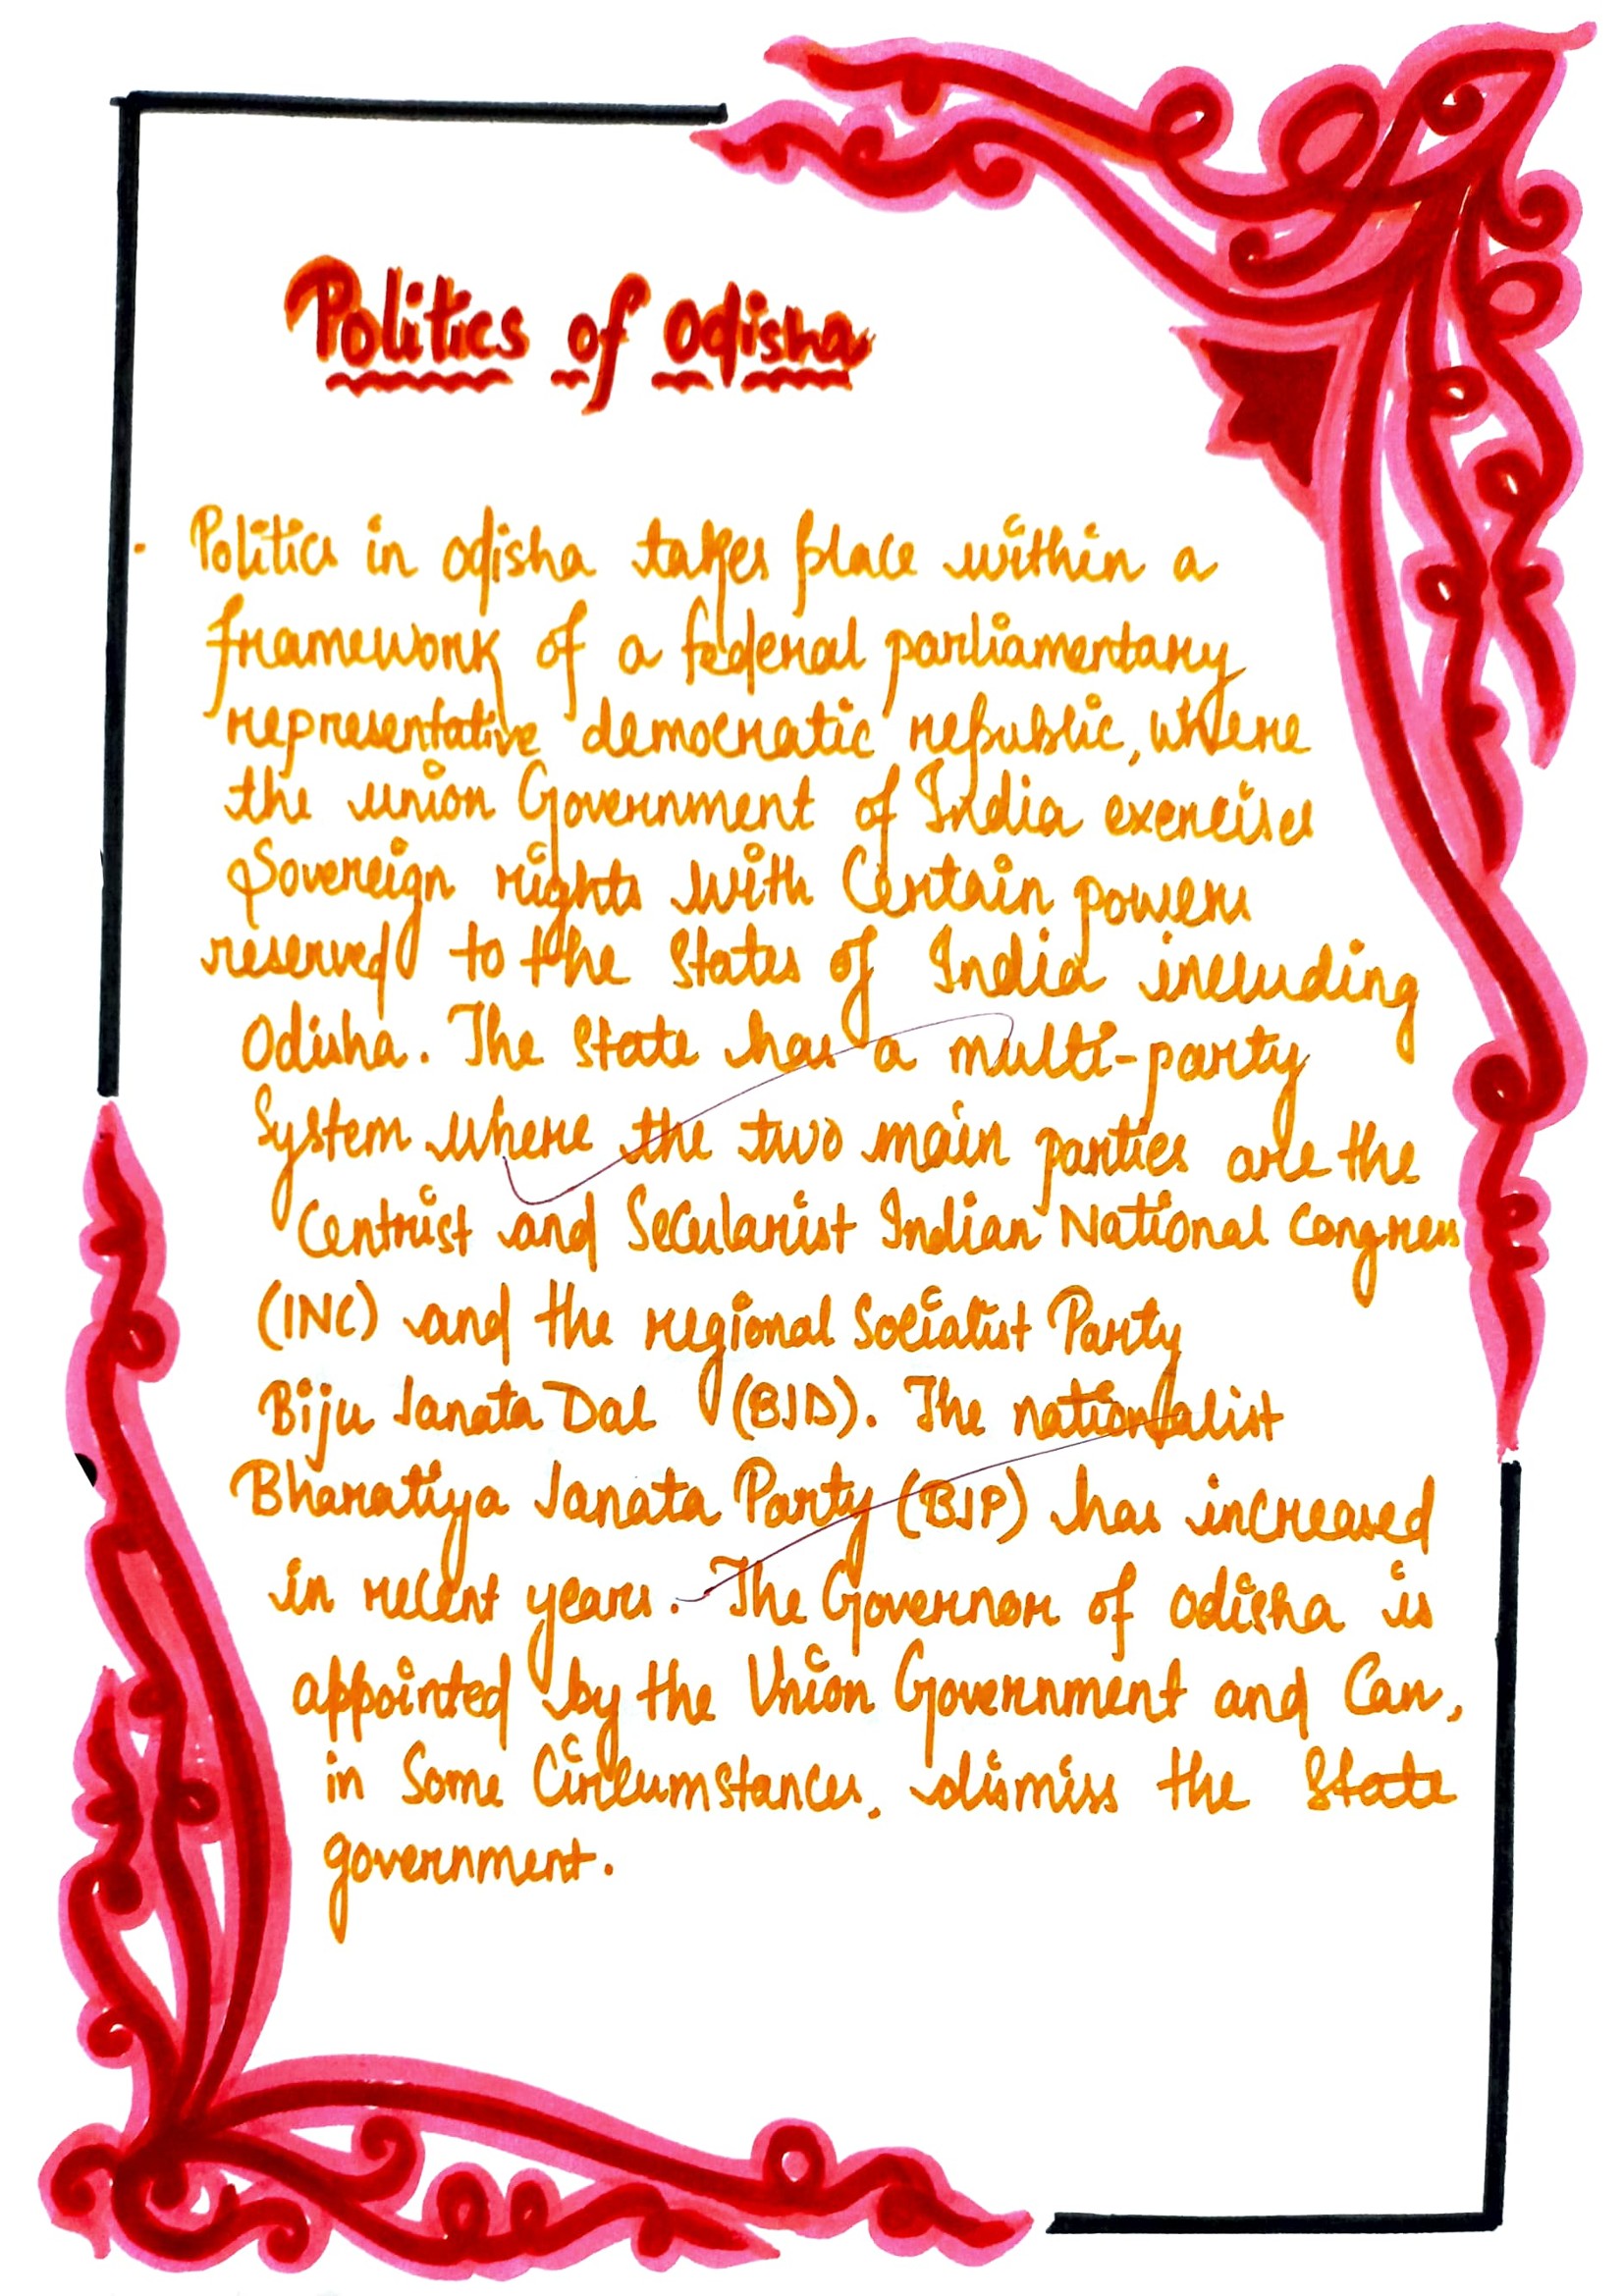 Politics of Odisha
Politics in Odisha takes place within a
framework of a federal parliamentary
representative democratic republic, where
the union Government of India exercises
Sovereign rights with Certain powers
reserved to the States of India including
Odisha. The State has a multi-party
System where the two main parties are the
Centrist and Secularist Indian National Congress
(INC) and the regional Socialist Party
Biju Janata Dal (BJD). The nationalist
Bharatiya Janata Party (BJP) has increased
in recent years. The Governor of Odisha is
appointed by the Union Government and Can,
in Some Circumstances, dismiss the State
government.